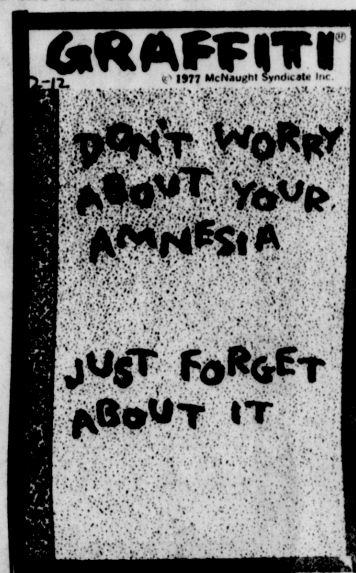 GRAFFITI®
© 1977 McNaught Syndicate Inc.
2-12
DON'T WORRY
ABOUT YOUR
AMNESIA
JUST FORGET
ABOUT IT